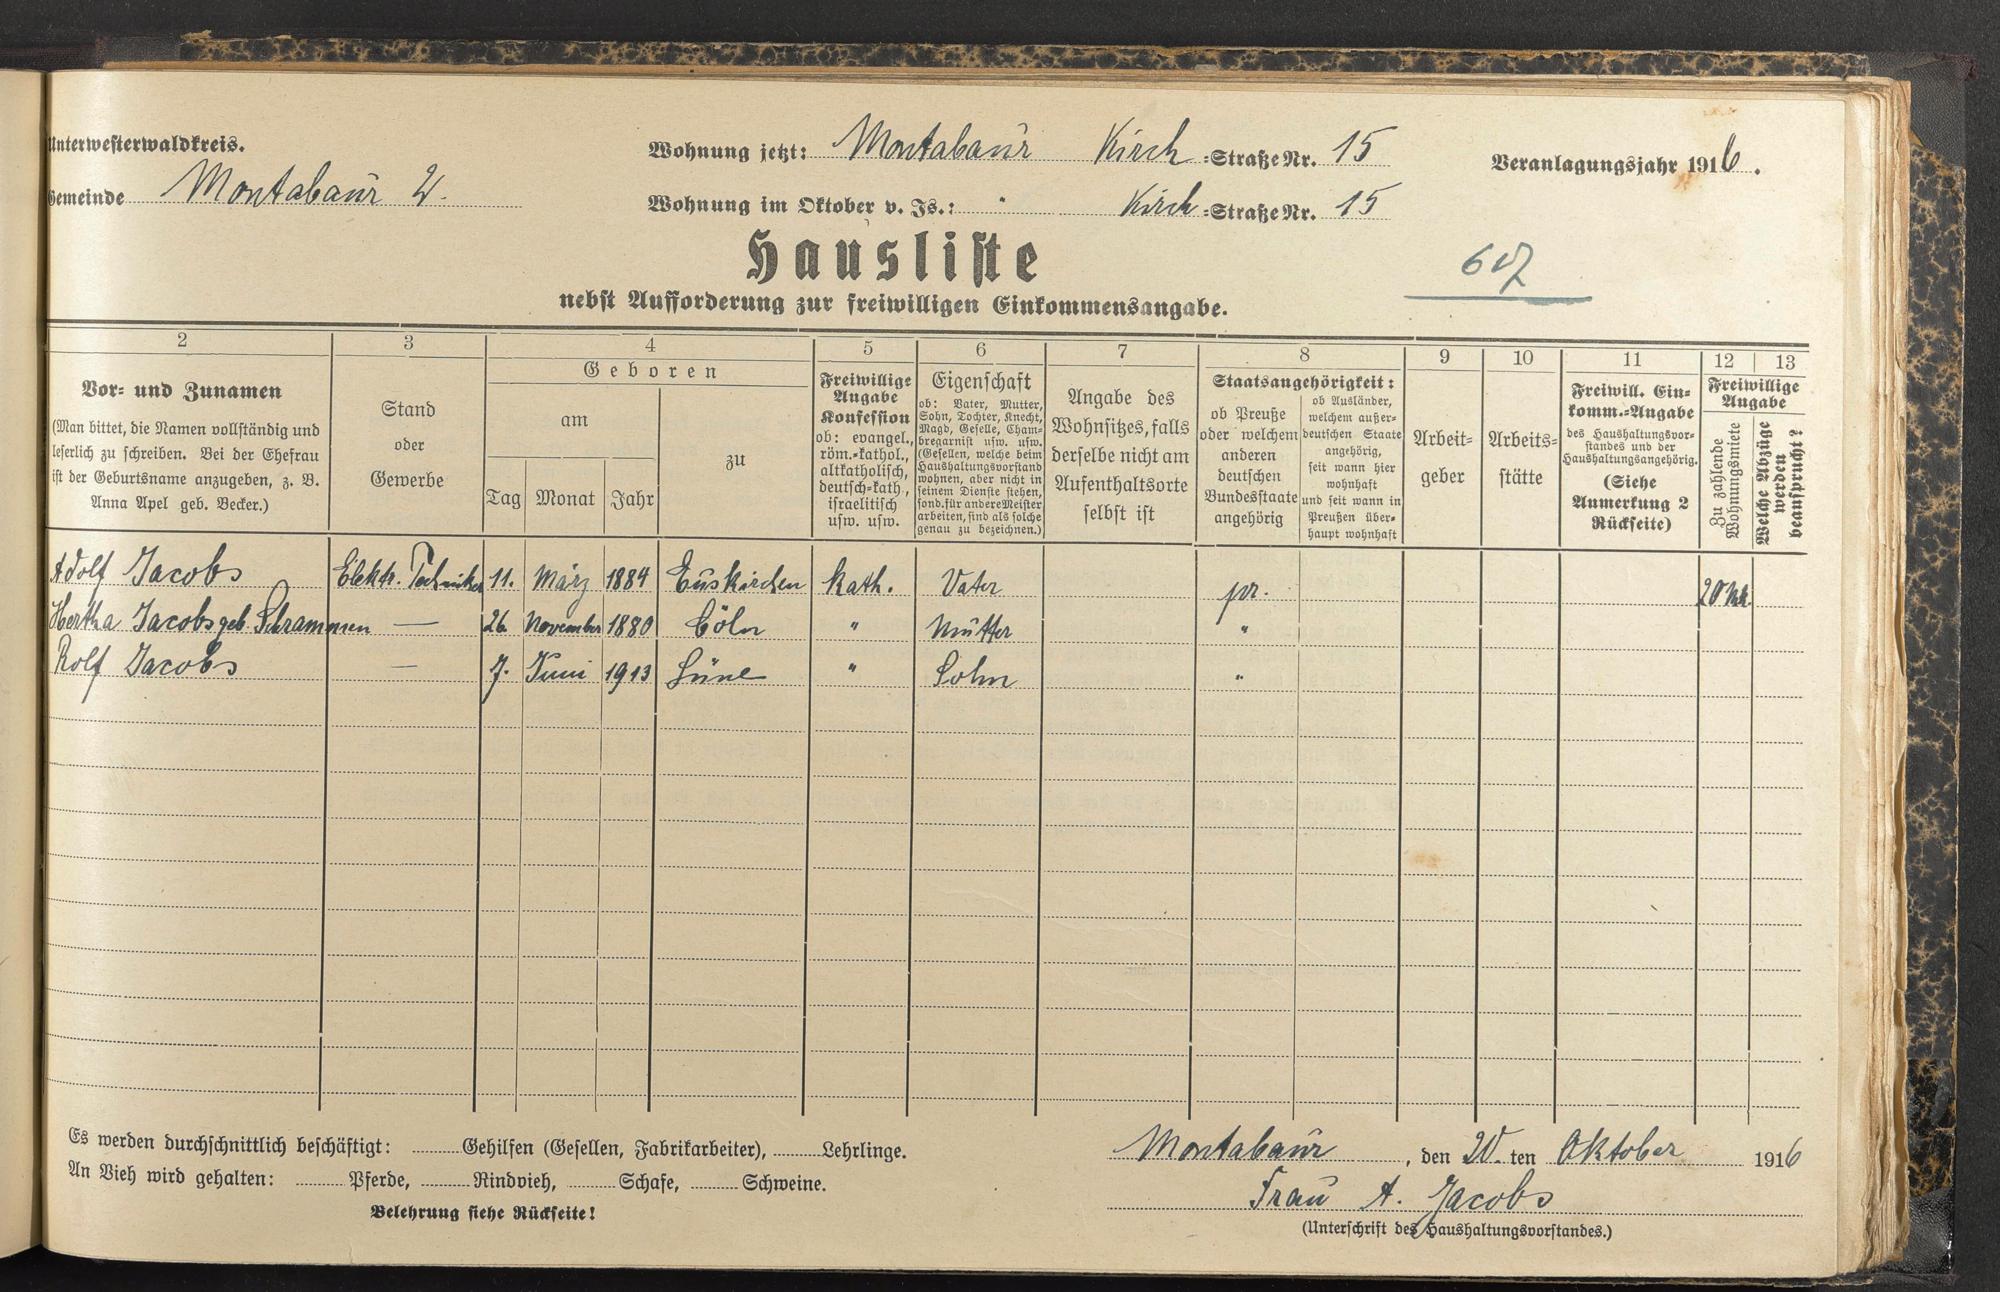 Unterwesterwaldkreis.
Gemeinde Montabaur
Wohnung jetzt: Montabaur Kirch =Straße Nr. 15
Wohnung im Oktober v. Js.: " Kirch =Straße Nr. 15
Veranlagungsjahr 1916.
Hausliste
nebst Aufforderung zur freiwilligen Einkommensangabe.
2 3 4 5 6 7 8 9 10 11 12 13
Vor- und Zunamen
(Man bittet, die Namen vollständig und
leserlich zu schreiben. Bei der Ehefrau
ist der Geburtsname anzugeben, z. B.
Anna Apel geb. Becker.)
Stand
oder
Gewerbe
Geboren
am
Tag Monat Jahr
zu
Freiwillige
Angabe
Konfession
ob: evangel.,
röm.-kathol.,
altkatholisch,
deutsch-kath.,
israelitisch
usw. usw.
Eigenschaft
ob: Vater, Mutter,
Sohn, Tochter, Knecht,
Magd, Geselle, Cham-
bregarnist usw. usw.
(Gesellen, welche beim
Haushaltungsvorstand
wohnen, aber nicht in
seinem Dienste stehen,
sond. für andere Meister
arbeiten, sind als solche
genau zu bezeichnen.)
Angabe des
Wohnsitzes, falls
derselbe nicht am
Aufenthaltsorte
selbst ist
Staatsangehörigkeit:
ob Preuße
oder welchem
anderen
deutschen
Bundesstaate
angehörig
ob Ausländer,
welchem außer-
deutschen Staate
angehörig,
seit wann hier
wohnhaft
und seit wann in
Preußen über-
haupt wohnhaft
Arbeit-
geber
Arbeits-
stätte
Freiwill. Ein-
komm.-Angabe
des Haushaltungsvor-
standes und der
Haushaltungsangehörig.
(Siehe
Anmerkung 2
Rückseite)
Freiwillige
Angabe
Zu zahlende
Wohnungsmiete
Welche Abzüge
werden
beansprucht?
Adolf Jacobs Elektr. Techniker 11. März 1884 Euskirchen kath. Vater pr. 20 Mk.
Hertha Jacobs geb. Schrammen — 26. November 1880 Cöln " Mutter "
Rolf Jacobs — 7. Juni 1913 " Sohn "
Es werden durchschnittlich beschäftigt: Gehilfen (Gesellen, Fabrikarbeiter), Lehrlinge.
An Vieh wird gehalten: Pferde, Rindvieh, Schafe, Schweine.
Belehrung siehe Rückseite!
Montabaur, den 20. ten Oktober 1916
Frau A. Jacobs
(Unterschrift des Haushaltungsvorstandes.)